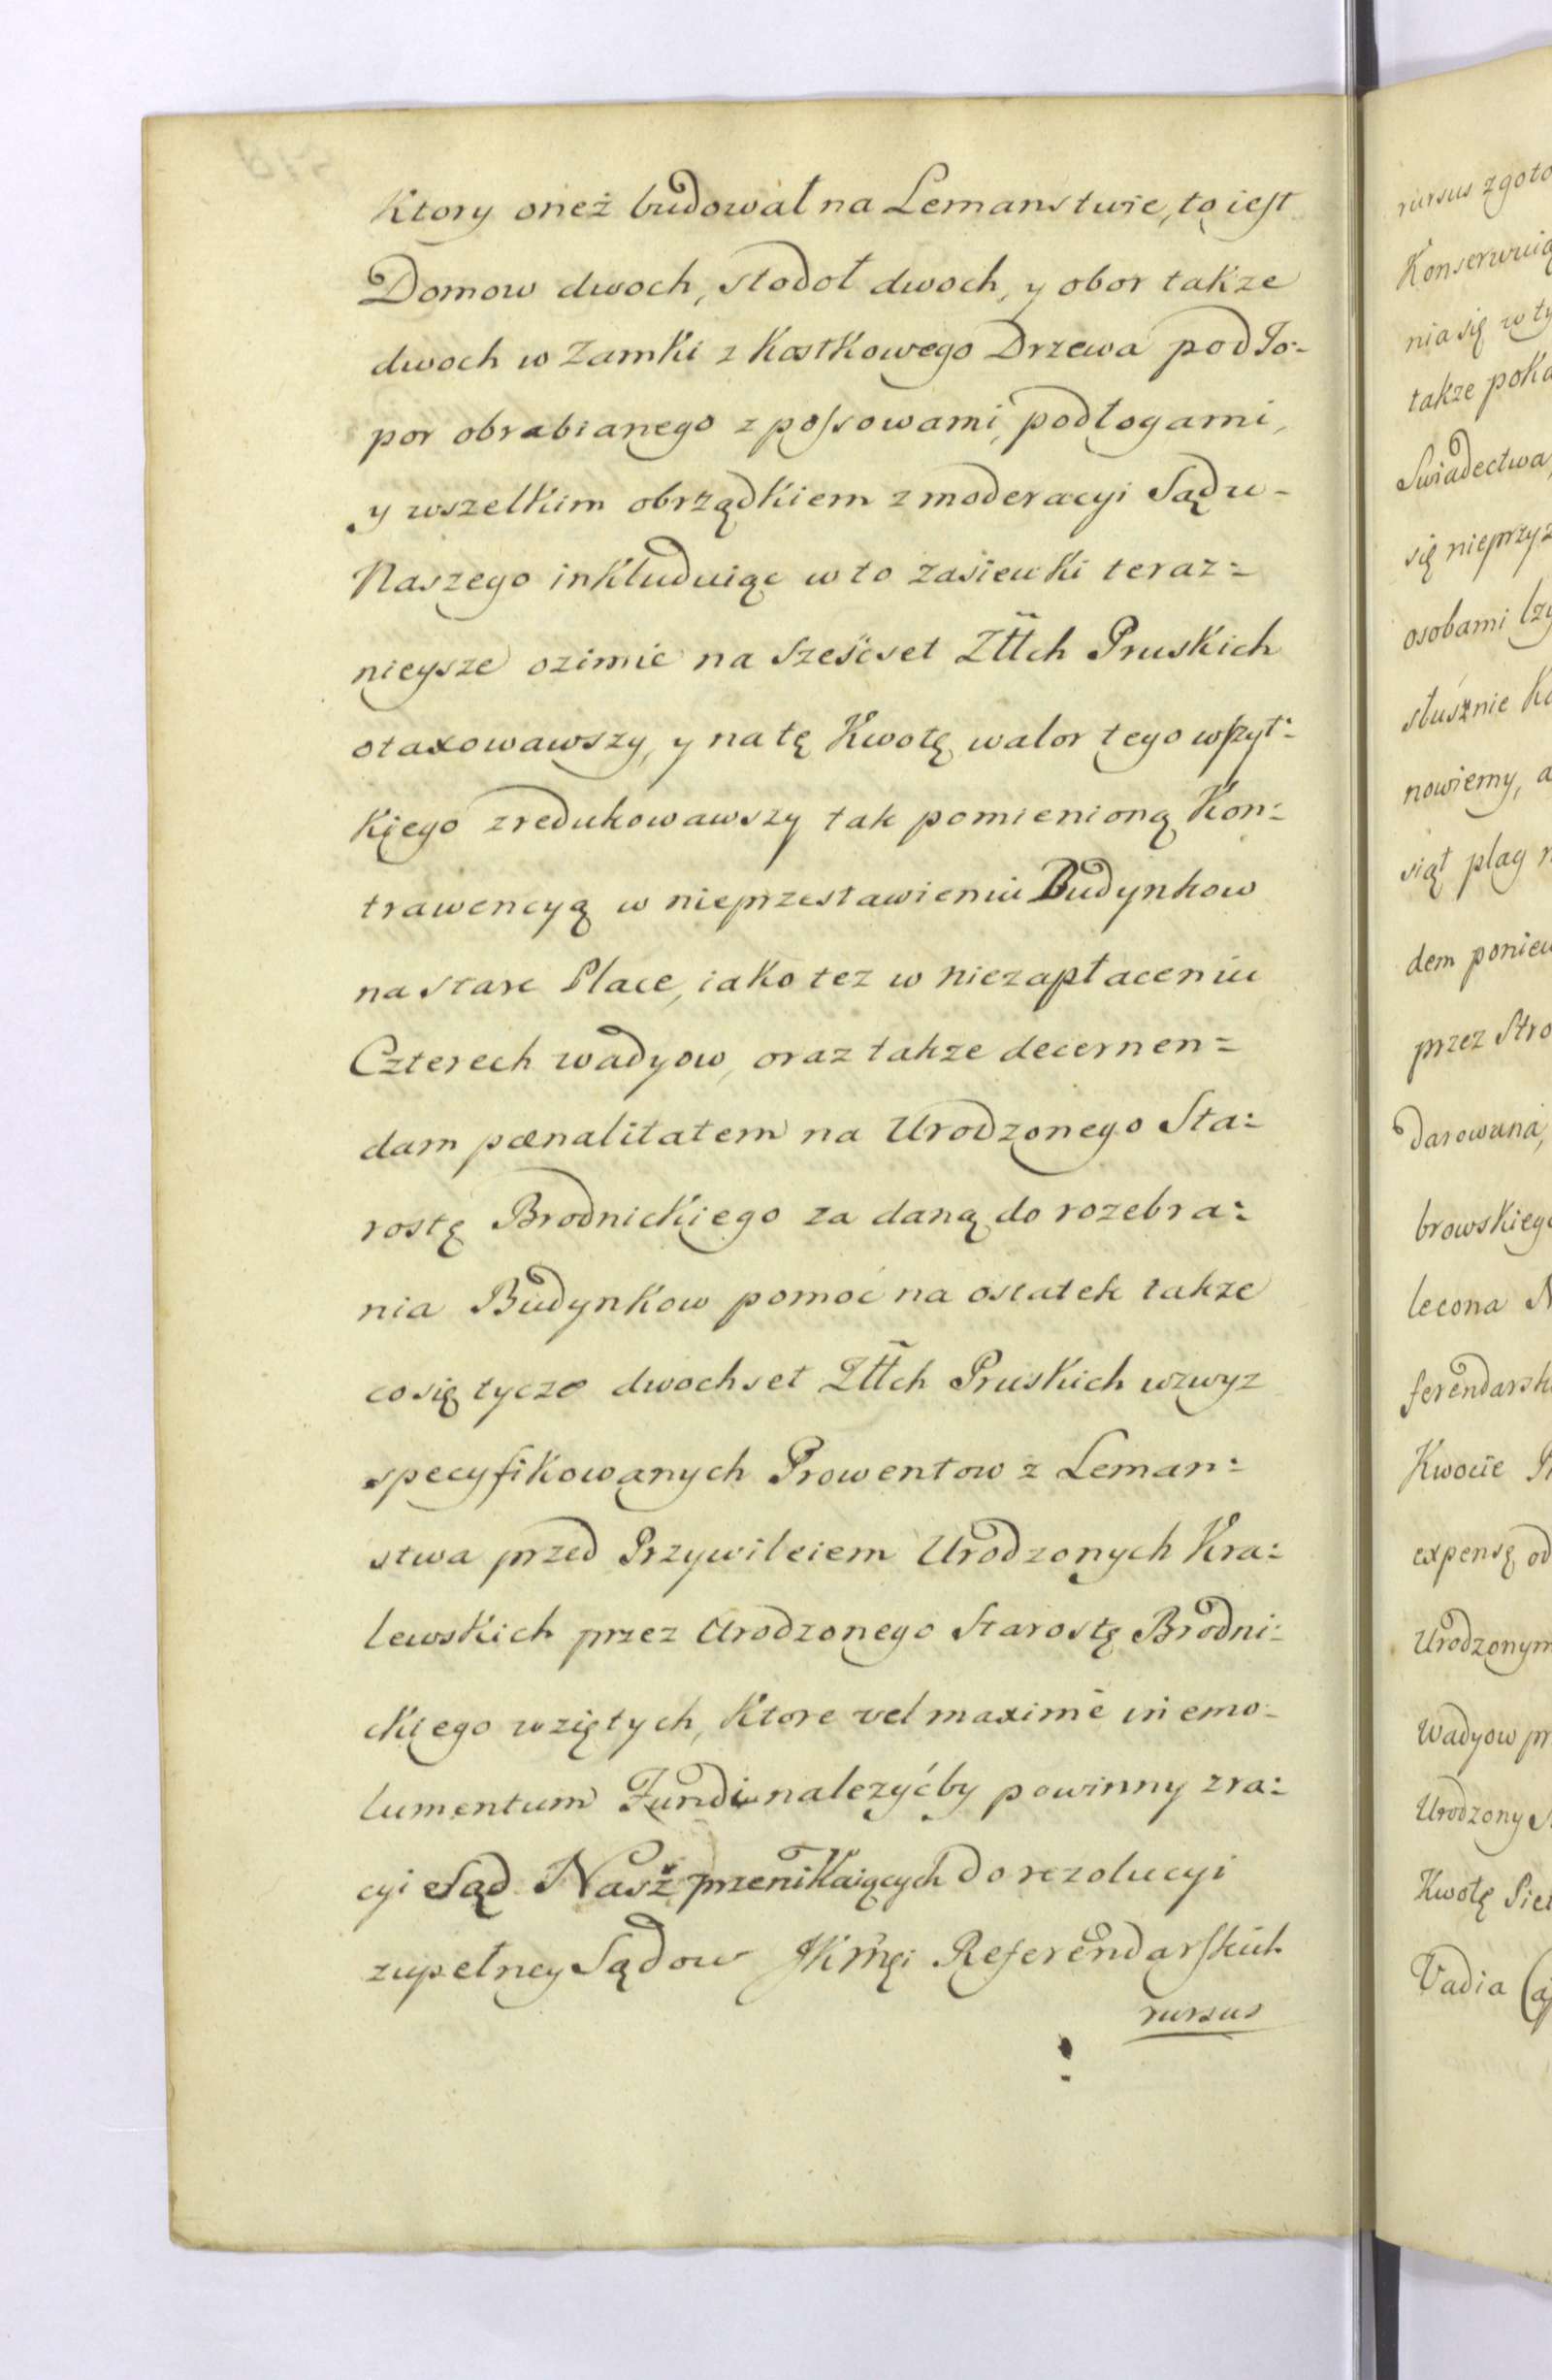 Ktory oneż budował na Lemanstwie, to iest
Domow dwoch, stodoł dwoch, y obor takze
dwoch w Zamki z Kostkowego Drzewa pod To-
por obrabianego z possowami, podłogami,
y wszelkim obrządkiem z moderacyi Sądu-
Naszego inkluduiąc w to zasiewki teraz=
nieysze ozimie na Sześćset Złłch Pruskich
otaxowawszy, y na tę Kwotę walor tego wszyt:
kiego zredukowawszy tak pomienioną Kon:
trawencyą w nieprzestawieniu Budynkow
na stare Place, iako tez w niezapłaceniu
Czterech wadyow, oraz takze decernen=
dam pœnalitatem na Urodzonego Sta:
rostę Brodnickiego za daną do rozebra:
nia Budynkow pomoć na ostatek takze
co się tycze dwochset Złłch Pruskich wzwyz
specyfikowanych Prowentow z Leman:
stwa przed Przywileiem Urodzonych Kra:
lewskich przez Urodzonego Starostę Brodni:
ckiego wziętych, Ktore vel maximè in emo-
lumentum Fundi należyćby powinny z ra:
cyi Sąd Nasz przenikaiących do rezolucyi
zupełney Sądow JKMęi Referendarskich
rursus
rursus zgoto
Konserwuią
nia się w ty
takze poka
Swiadectwa,
się nieprzyz
osobami lzy
słusznie Ko
nowiemy, a
siąt plag n
dem poniew
przez Stro
darowana,
browskiego
lecona N
ferendarsk
Kwocie Pr
expensę od
Urodzonym
Wadyow pr
Urodzony S
Kwotę Pie
Vadia (a